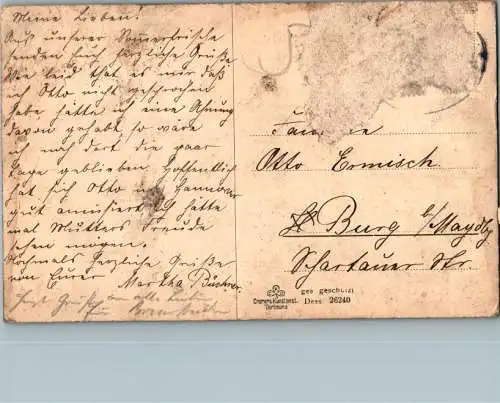 Meine Lieben!
Aus unserer Sommerfrische
senden Euch herzliche Grüße.
Wie leid that es mir daß
ich Otto nicht gesprochen
habe hätte ich eine Ahnung
davon gehabt so wäre
ich noch dort die paar
Tage geblieben. Hoffentlich
hat sich Otto in Hannover
gut amüsiert ich hätte
mal Mutters Freude
sehen mögen.
Nochmals herzliche Grüße
von Eurer Martha Büchner.
Herzl. Grüße
Familie
Otto Ermisch.
Burg b/Magdbg
Schartauer Str.
Cramers Kunstanst.
Dortmund
ges geschützt
Dess 26240